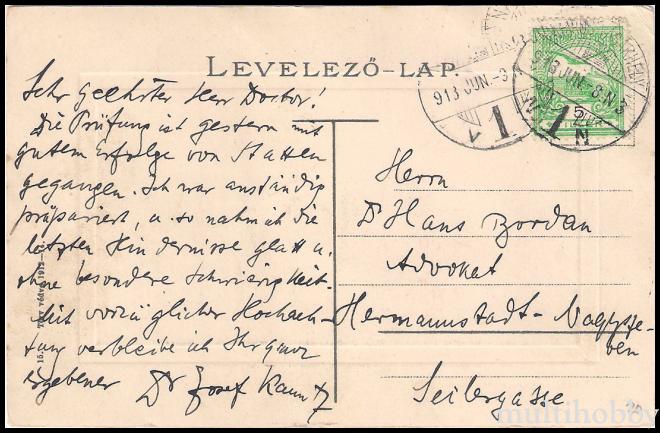 LEVELEZŐ-LAP.
Sehr geehrter Herr Doctor!
Die Prüfung ist gestern mit
gutem Erfolge von Statten
gegangen. Ich war anständig
präpariert, u. so nahm ich die
letzten Hindernisse glatt u.
ohne besondere Schwierigkeit.
Mit vorzüglicher Hochach-
tung verbleibe ich Ihr ganz
ergebener Dr Josef
Herrn
Dr Hans Bordan
Advokat
Hermannstadt-Nagysze-
ben
Seilergasse
913 JUN.
1
V
913 JUN. 8. N 3
1
N
multihobby